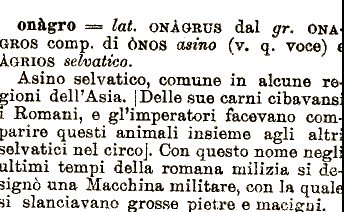 onàgro = lat. ONÀGRUS dal gr. ONA-
GROS comp. di ÒNOS asino (v. q. voce) e
ÀGRIOS selvatico.
Asino selvatico, comune in alcune re-
gioni dell'Asia. [Delle sue carni cibavansi
i Romani, e gl'imperatori facevano com-
parire questi animali insieme agli altri
selvatici nel circo]. Con questo nome negli
ultimi tempi della romana milizia si de-
signò una Macchina militare, con la quale
si slanciavano grosse pietre e macigni.